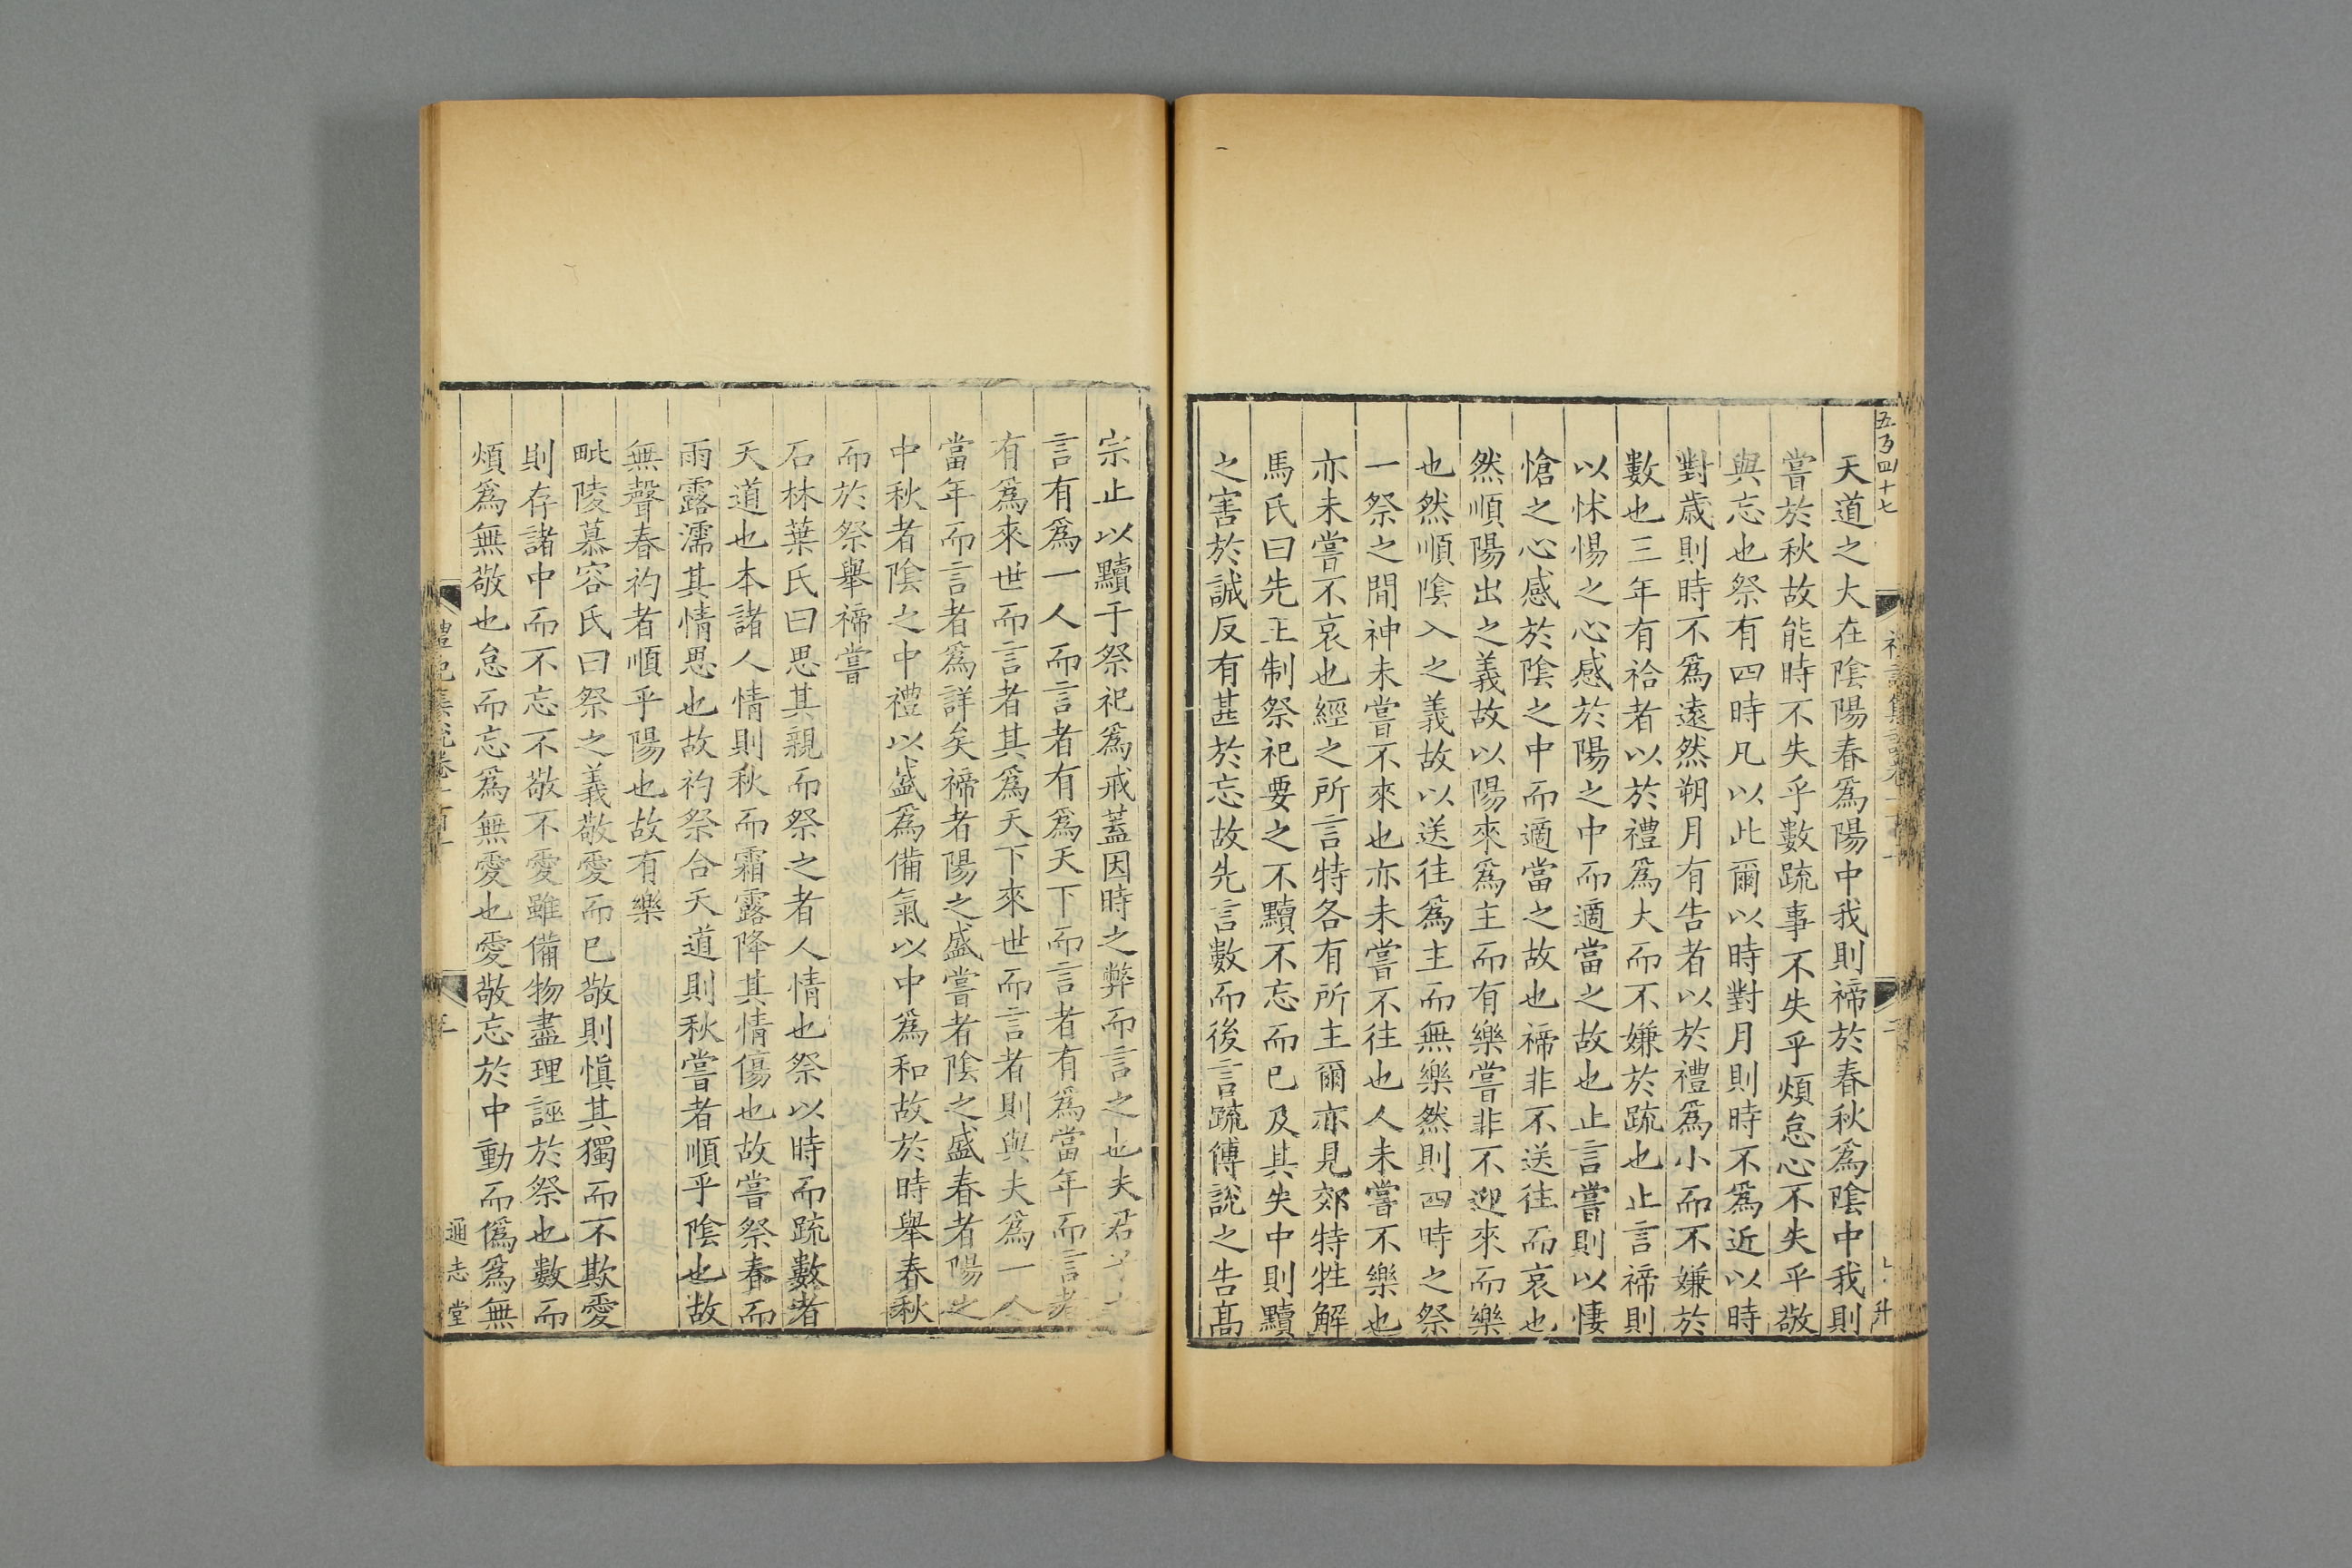 五百四十七
天道之大在陰陽春爲陽中我則禘於春秋爲陰中我則
嘗於秋故能時不失乎數疏事不失乎煩怠心不失乎敬
與忘也祭有四時凡以此爾以時對月則時不爲近以時
對歲則時不爲遠然朔月有告者以於禮爲小而不嫌於
數也三年有祫者以於禮爲大而不嫌於疏也止言禘則
以怵惕之心感於陽之中而適當之故也止言嘗則以悽
愴之心感於陰之中而適當之故也禘非不送往而哀也
然順陽出之義故以陽來爲主而有樂嘗非不迎來而樂
也然順陰入之義故以送往爲主而無樂然則四時之祭
一祭之間神未嘗不來也亦未嘗不往也人未嘗不樂也
亦未嘗不哀也經之所言特各有所主爾亦見郊特牲解
馬氏曰先王制祭祀要之不黷不忘而已及其失中則黷
之害於誠反有甚於忘故先言數而後言疏傅說之告高
宗止以黷于祭祀爲戒蓋因時之弊而言之也夫君子
言有爲一人而言者有爲天下而言者有爲當年而言者
有爲來世而言者其爲天下來世而言者則與夫爲一人
當年而言者爲詳矣禘者陽之盛嘗者陰之盛春者陽之
中秋者陰之中禮以盛爲備氣以中爲和故於時舉春秋
而於祭舉禘嘗
石林葉氏曰思其親而祭之者人情也祭以時而疏數者
天道也本諸人情則秋而霜露降其情傷也故嘗祭春而
雨露濡其情思也故礿祭合天道則秋嘗者順乎陰也故
無聲春礿者順乎陽也故有樂
毗陵慕容氏曰祭之義敬愛而已敬則愼其獨而不欺愛
則存諸中而不忘不敬不愛雖備物盡理誣於祭也數而
煩爲無敬也怠而忘爲無愛也愛敬忘於中動而僞爲無
禮記集說卷一百十
通志堂